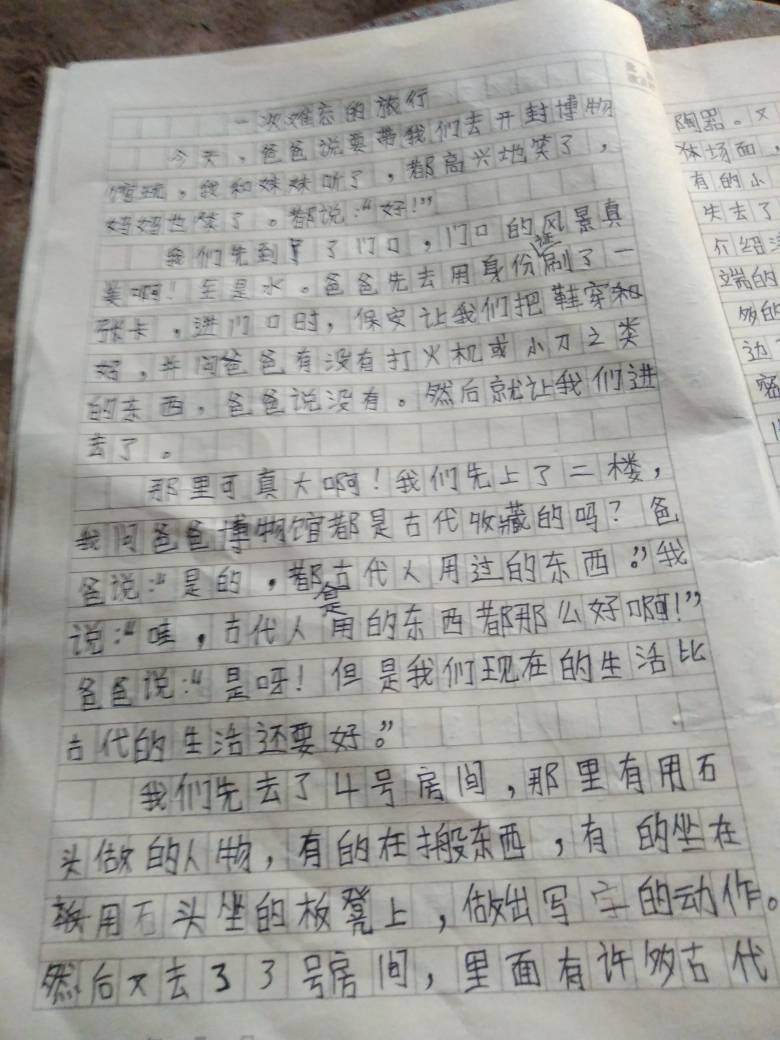 一次难忘的旅行
今天，爸爸说要带我们去开封博物
馆玩，我和妹妹听了，都高兴地笑了，
妈妈也笑了。都说：“好！”
我们先到了门口，门口的风景真
美啊！全是水。爸爸先去用身份证刷了一
张卡，进门口时，保安让我们把鞋穿和
好，并问爸爸有没有打火机或小刀之类
的东西，爸爸说没有。然后就让我们进
去了。
那里可真大啊！我们先上了二楼，
我问爸爸博物馆都是古代收藏的吗？爸
爸说：“是的，都是古代人用过的东西。”我
说：“哇，古代人用的东西都那么好啊！”
爸爸说：“是呀！但是我们现在的生活比
古代的生活还要好。”
我们先去了4号房间，那里有用石
头做的人物，有的在搬东西，有的坐在
用石头坐的板凳上，做出写字的动作。
然后又去了3号房间，里面有许多古代
陶器。又
体场面，
有的小
失去了
介绍
端的
够的
边